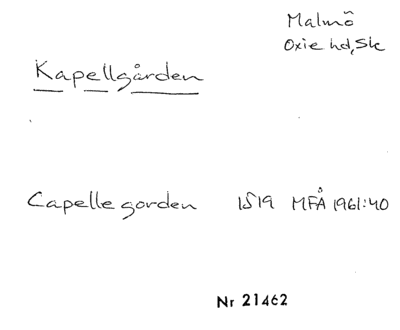 Malmö
Oxie hd, Sk
Kapellgården
Capelle gorden 1519 MFÅ 1961:40
Nr 21462